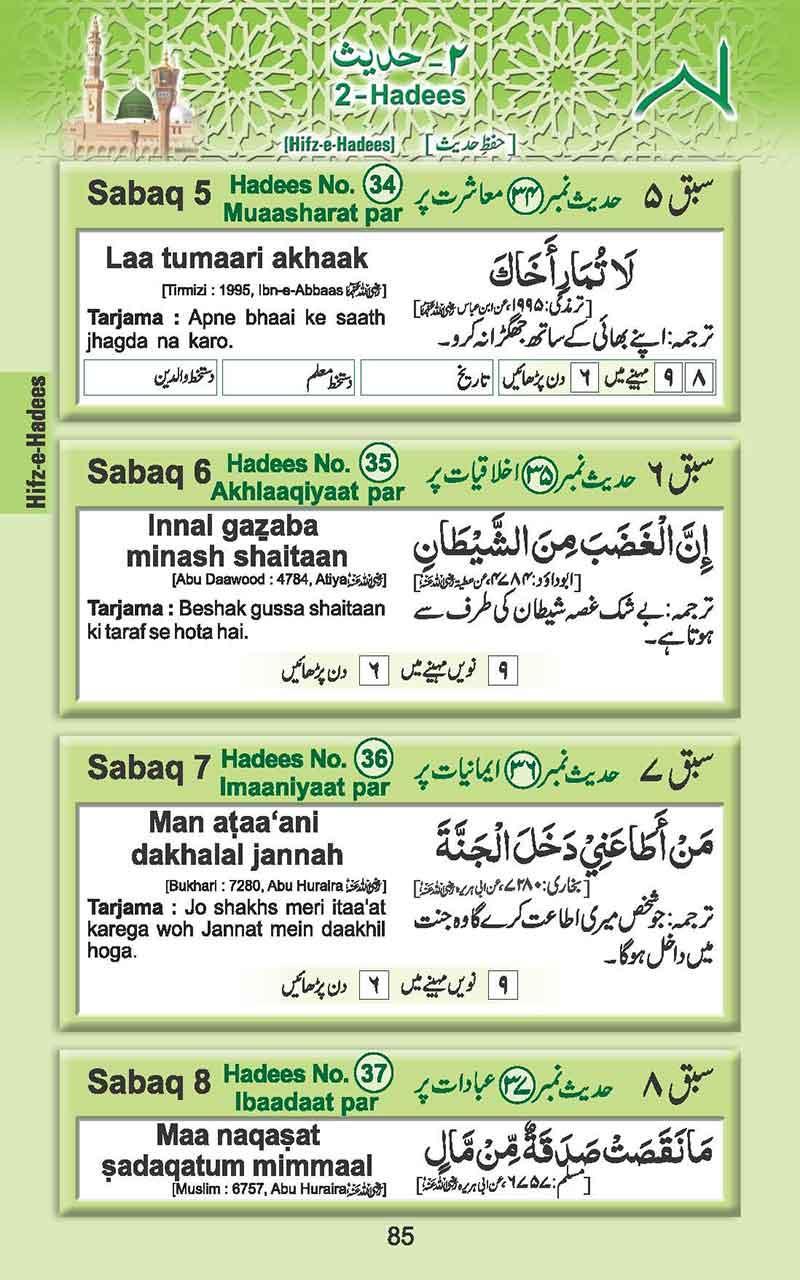 ۲- حدیث
2-Hadees
[Hifz-e-Hadees] [حفظِ حدیث]
Hifz-e-Hadees
Sabaq 5 Hadees No. 34 حدیث نمبر ۳۴ معاشرت پر سبق ۵
Muaasharat par
Laa tumaari akhaak لَا تُمَارِ أَخَاكَ
[Tirmizi : 1995, Ibn-e-Abbaas رضی اللہ عنہما] [ترمذی: ۱۹۹۵، عن ابن عباس رضی اللہ عنہما]
Tarjama : Apne bhaai ke saath ترجمہ: اپنے بھائی کے ساتھ جھگڑا نہ کرو۔
jhagda na karo.
۸ ۹ مہینے میں ۶ دن پڑھائیں تاریخ دستخط معلم دستخط والدین
Sabaq 6 Hadees No. 35 حدیث نمبر ۳۵ اخلاقیات پر سبق ۶
Akhlaaqiyaat par
Innal gaẕaba إِنَّ الْغَضَبَ مِنَ الشَّيْطَانِ
minash shaitaan
[Abu Daawood : 4784, Atiya رضی اللہ عنہ] [ابوداؤد: ۴۷۸۴، عن عطیۃ رضی اللہ عنہ]
Tarjama : Beshak gussa shaitaan ترجمہ: بے شک غصہ شیطان کی طرف سے
ki taraf se hota hai. ہوتا ہے۔
۹ نویں مہینے میں ۶ دن پڑھائیں
Sabaq 7 Hadees No. 36 حدیث نمبر ۳۶ ایمانیات پر سبق ۷
Imaaniyaat par
Man aṭaa‘ani مَنْ أَطَاعَنِيْ دَخَلَ الْجَنَّةَ
dakhalal jannah
[Bukhari : 7280, Abu Huraira رضی اللہ عنہ] [بخاری: ۷۲۸۰، عن ابی ہریرہ رضی اللہ عنہ]
Tarjama : Jo shakhs meri itaa'at ترجمہ: جو شخص میری اطاعت کرے گا وہ جنت
karega woh Jannat mein daakhil میں داخل ہوگا۔
hoga.
۹ نویں مہینے میں ۶ دن پڑھائیں
Sabaq 8 Hadees No. 37 حدیث نمبر ۳۷ عبادات پر سبق ۸
Ibaadaat par
Maa naqaṣat مَا نَقَصَتْ صَدَقَةٌ مِّنْ مَّالٍ
ṣadaqatum mimmaal
[Muslim : 6757, Abu Huraira رضی اللہ عنہ] [مسلم: ۶۷۵۷، عن ابی ہریرہ رضی اللہ عنہ]
85